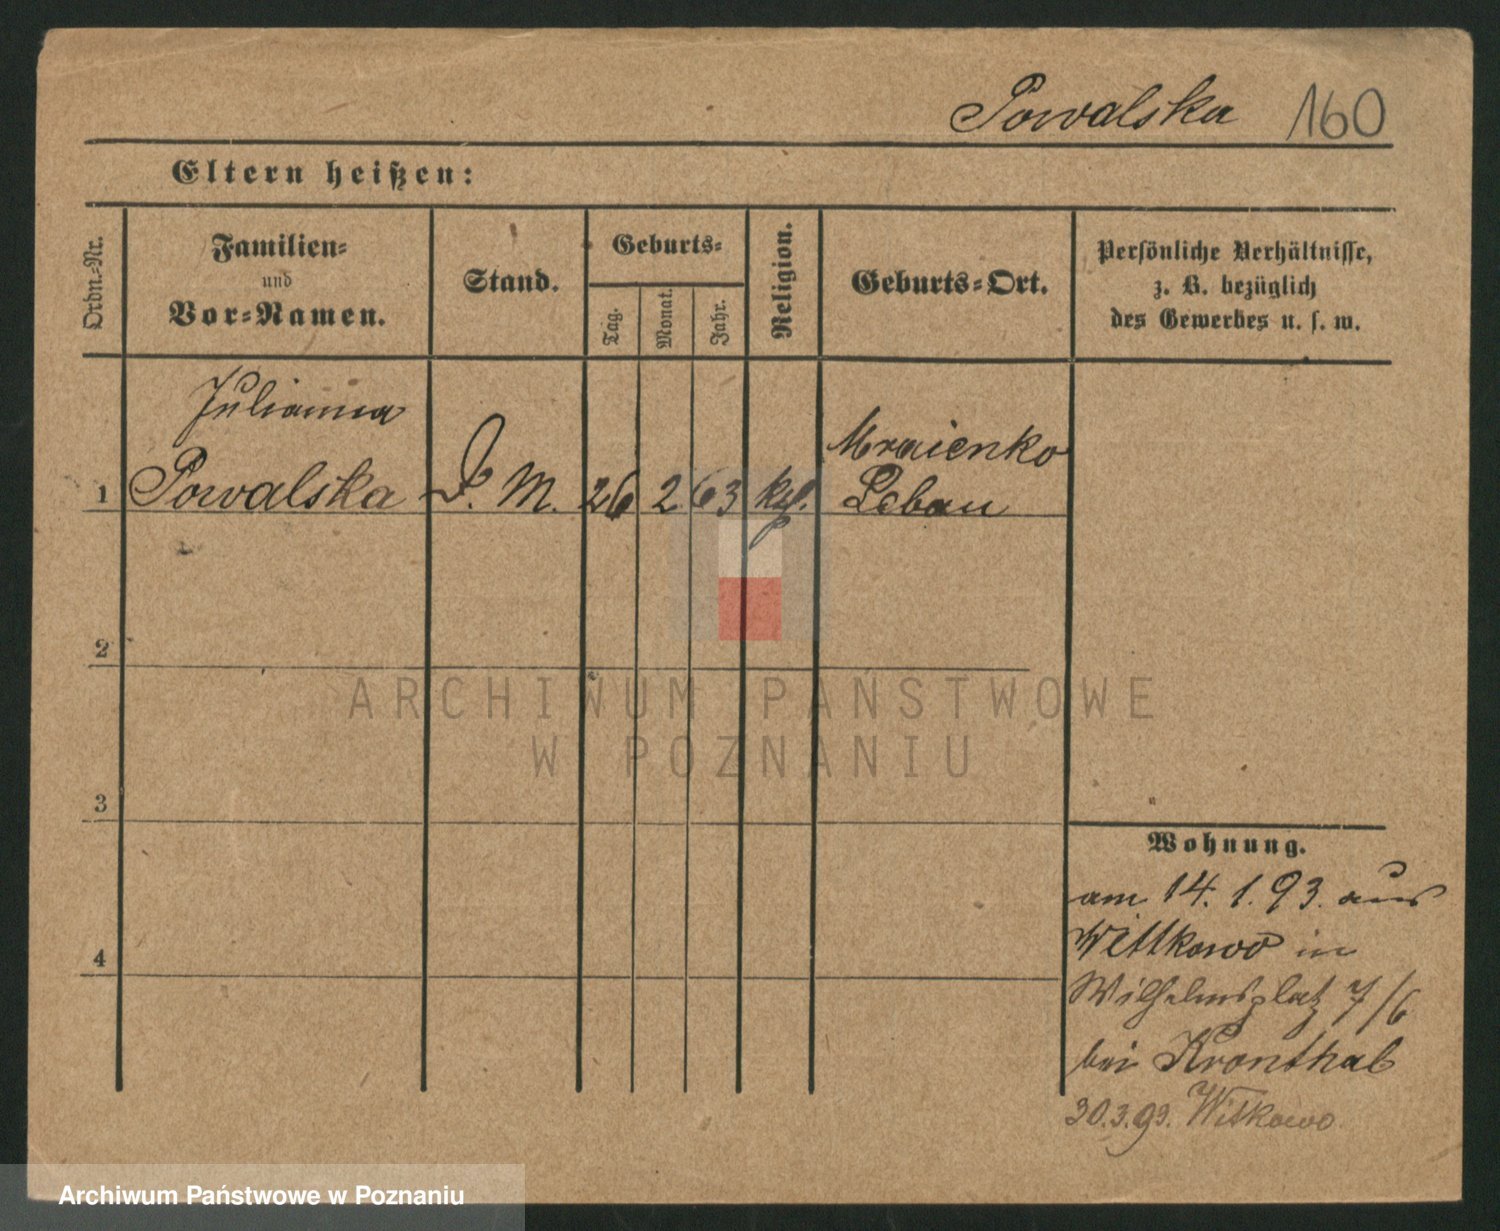 Powalska 160
Eltern heißen:
Ordn.-Nr.
Familien-
und
Vor-Namen.
Stand.
Geburts-
Tag.
Monat.
Jahr.
Religion.
Geburts-Ort.
Persönliche Verhältnisse,
z. B. bezüglich
des Gewerbes u. s. w.
Julianna
1 Powalska D. M. 26 2 63 kth. Mraienko
Lobau
2
3
4
Wohnung.
am 14. 1. 93. aus
Wittkowo in
Wilhelmsplatz 7/6
bei Kronthal
30.3.93. Witkowo.
ARCHIWUM PAŃSTWOWE
W POZNANIU
Archiwum Państwowe w Poznaniu